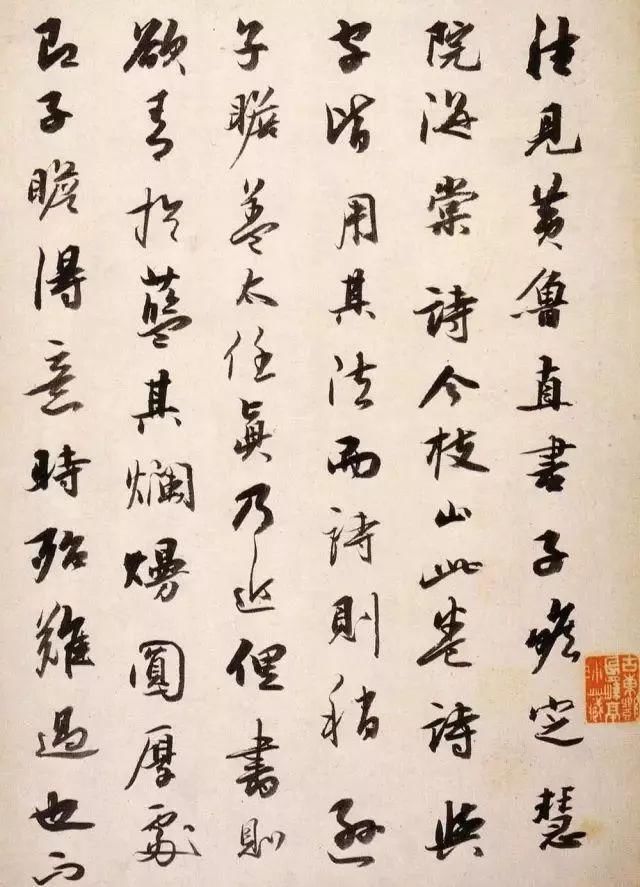 往見黄魯直書子瞻定慧
院海棠詩今枝山此卷詩與
字皆用其法而詩則稍遜
子瞻蓋太任真乃近俚書則
欲青於藍其爛熳圓厚處
即子瞻得意時殆難過也而